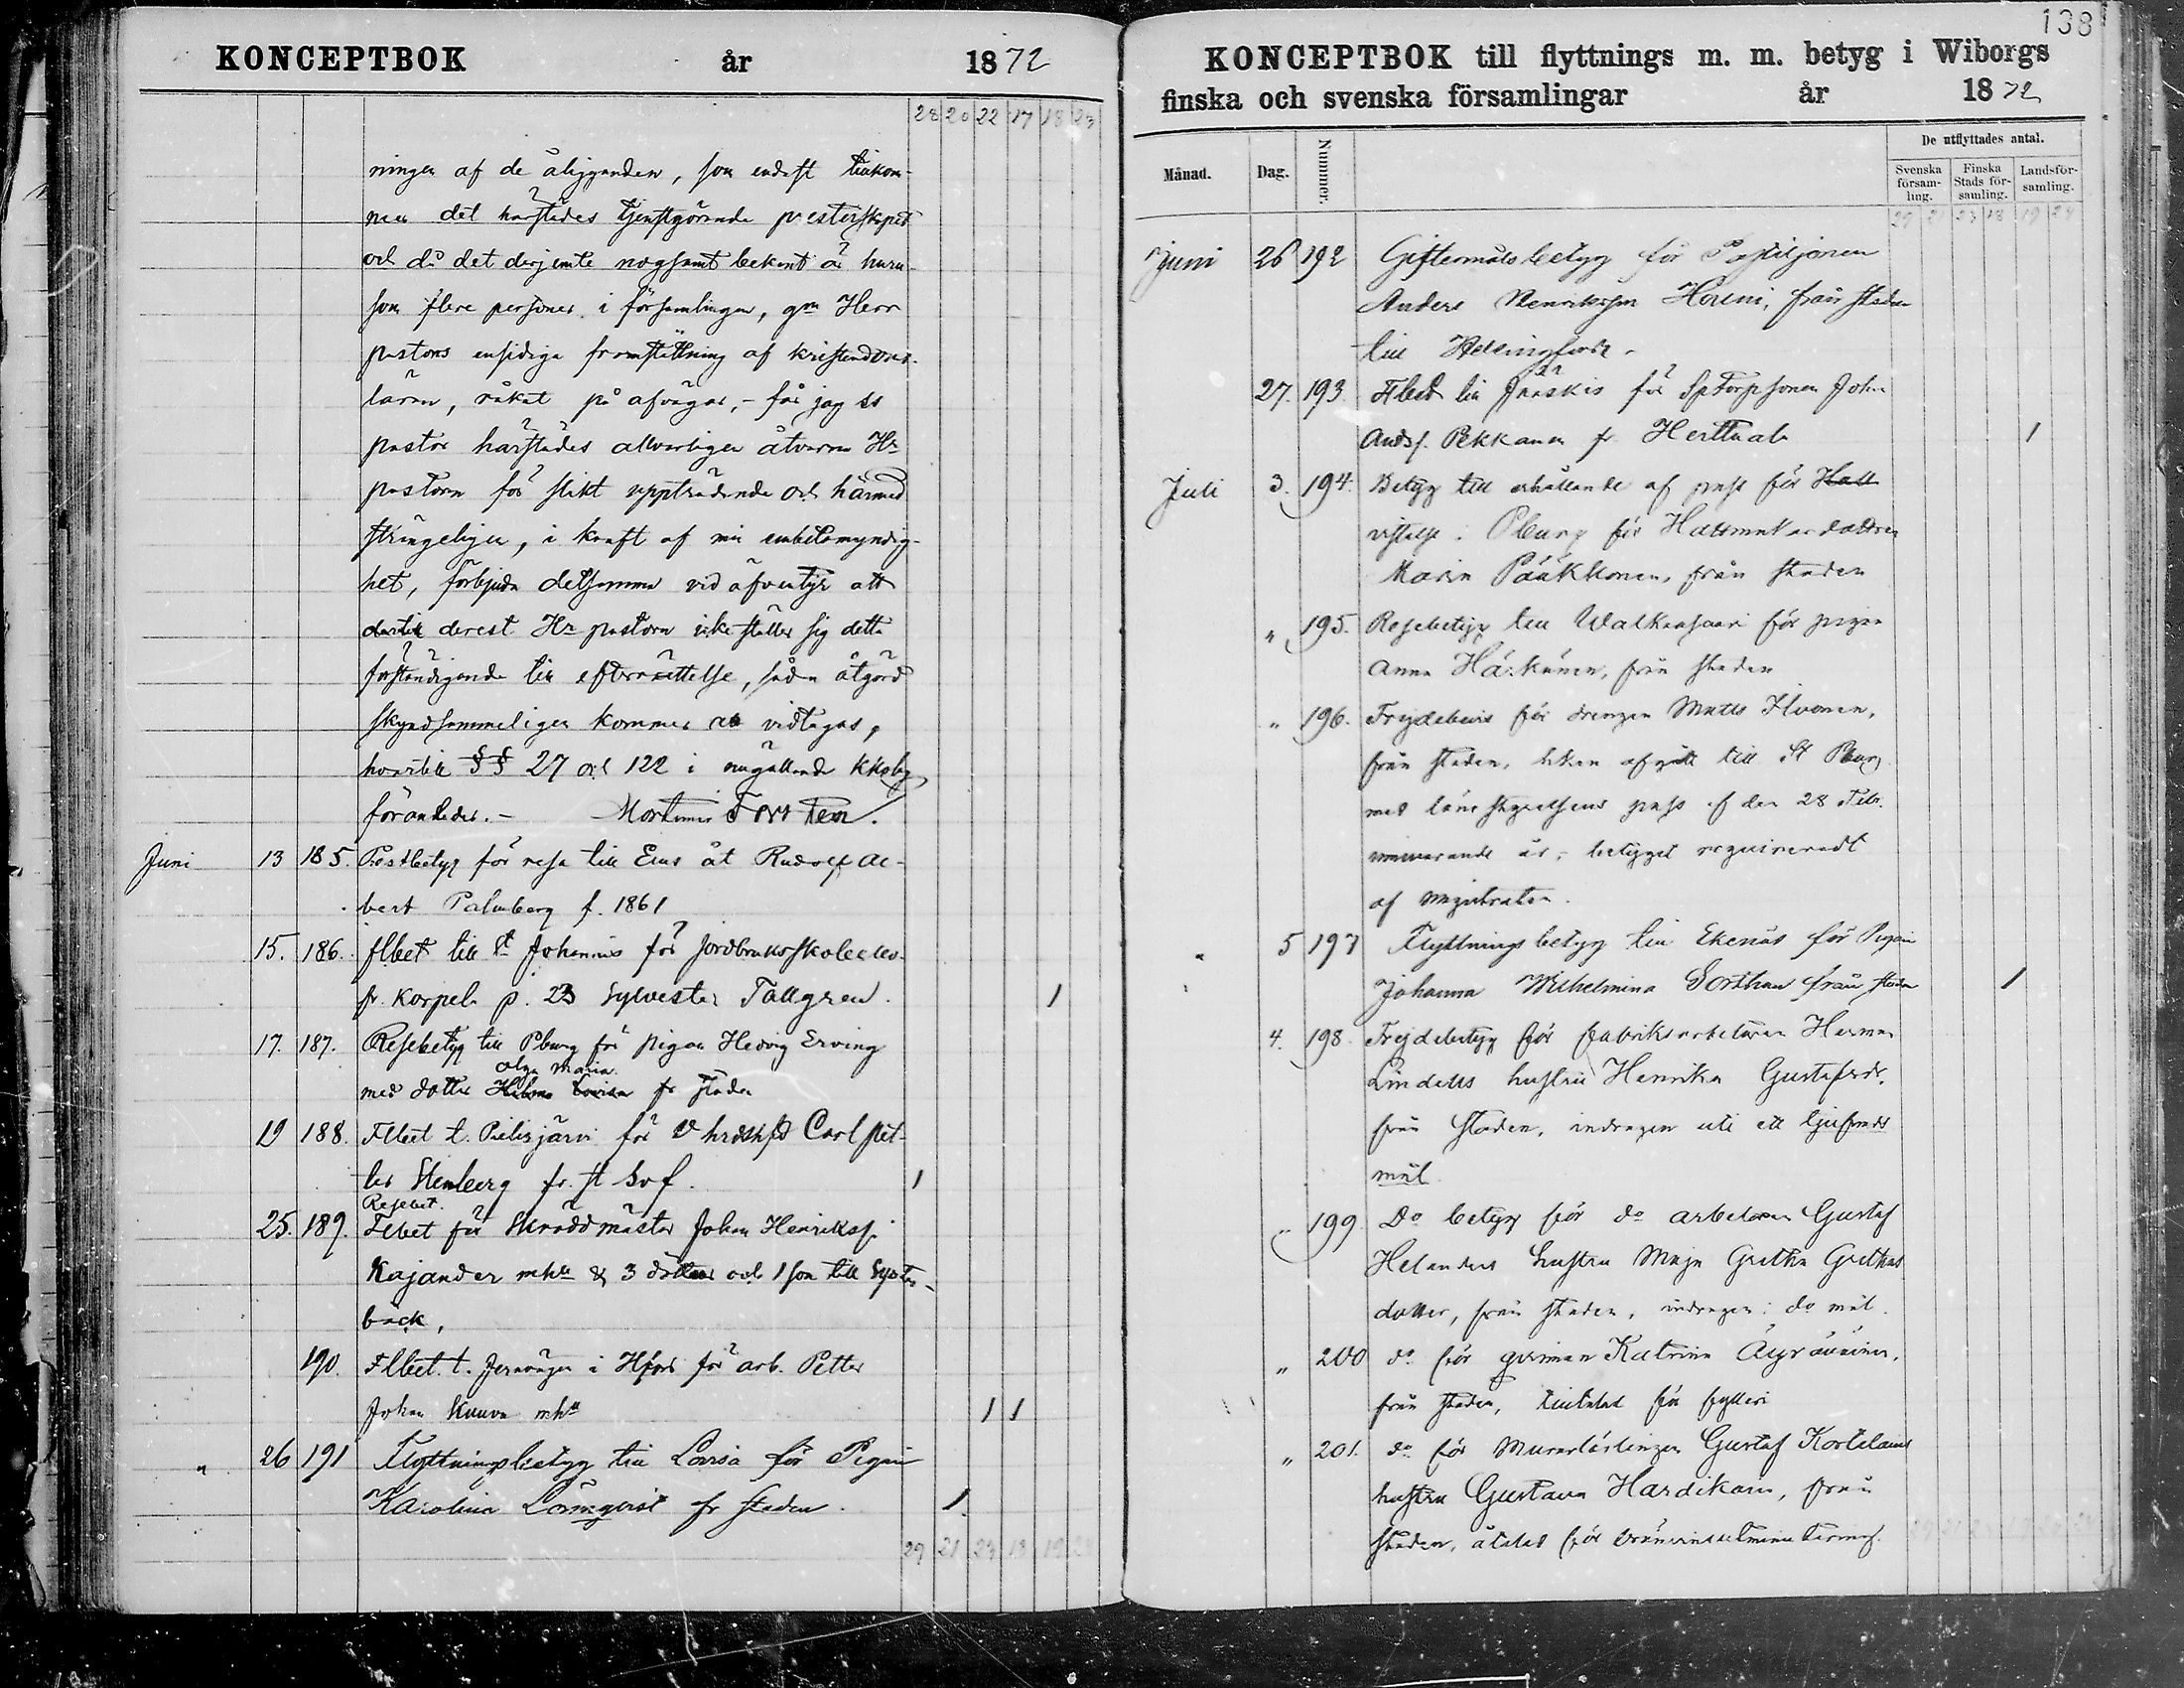 KONCEPTBOK år 1872
28 20 22 17 18 23
ningen af de åligganden, som endast tillkom-
mer det härstädes tjenstgörande presterskapet
och då det derjemte nogsamt bekant är huru-
som flere personer i församlingen, gm Herr
pastors ensidiga framställning af kristendoms-
läran, råkat på afvägar, - får jag ss
pastor härstädes allvarligen åtvarna Hr
pastorn för slikt uppträdande och härmed
strängeligen, i kraft af min embetsmyndig-
het, förbjuda detsamma vid äfventyr att
derest Hr pastorn icke ställer sig detta
förständigande till efterrättelse, sådan åtgärd
skyndsammeligen kommer att vidtagas,
hvartill §§ 27 och 122 i nugällande kkolag
föranleder. - Mortimer
Juni 13 185. Prestbetyg för resa till Ems åt Rudolf Al-
bert Palmberg f. 1861
15. 186. flbet till St Johannis för jordbruksskoleelev.
fr. Korpela p. 23 Sylvester Tallgren. 1
17. 187. Resebetyg till Pburg för pigan Hedvig Erving
Olga Maria
med dotter Hilma Lovisa fr staden
19 188. Flbet t. Pielisjärvi för V hrdshfd Carl Pet-
ter Stenberg fr. st Svf. 1
Resebet.
25. 189. Flbet för Skräddmästar Johan Henrikss.
Kajander mhu & 3 döttrar och 1 son till Syster-
bäck,
190. Flbet. t. Jernvägen i Hfors för arb. Petter
Johan Kuuva mhu 1 1
" 26 191 Flyttningsbetyg till Lovisa för Pigan
Karolina Lönnqvist fr staden. 1
29 21 23 18 19 24
138
KONCEPTBOK till flyttnings m. m. betyg i Wiborgs
finska och svenska församlingar år 1872
Månad. Dag. Nummer. De utflyttades antal.
Svenska försam-ling. Finska Stads för-samling. Landsför-samling.
29 21 23 18 19 24
Juni 26 192 Giftermålsbetyg för Postiljonen
Anders Henriksson Horeni, från staden
till Helsingfors.
27. 193. Flbet till Jääskis för SpTorpsonen Johan
Ands. Pekkanen fr Herttuala 1
Juli 3. 194. Betyg till erhållande af pass för Hatt
vistelse i Pburg för Hattmakardottren
Maria Pääkkönen, från staden
" 195. Resebetyg till Walkeasaari för pigan
Anna Häikänen, från staden
" 196. Frejdebevis för drengen Matts Ihonen,
från staden, hvilken afgått till St Pburg
med länestyrelsens pass af den 28 Febr.
innevarande år, betyget requireradt
af Magistraten.
" 5 197 Flyttningsbetyg till Ekenäs för Pigan
Johanna Wilhelmina Sorthan från staden 1
4. 198. Frejdebetyg för fabriksarbetaren Herman
Lindells hustru Henrika Gustafsdr,
från staden, indragen uti ett tjufnads
mål
" 199 Do betyg för do arbetaren Gustaf
Helanders hustru Maja Gretha Grelsdotter
dotter, från staden, indragen i do mål.
" 200 do för qvinnan Katrina Äyräväinen,
från staden, tilltalad för fylleri
" 201. do för Murarlärlingen Gustaf Kortelains
hustru Gustava Hardikain, från
staden, åtalad för bränvinsutminutering.